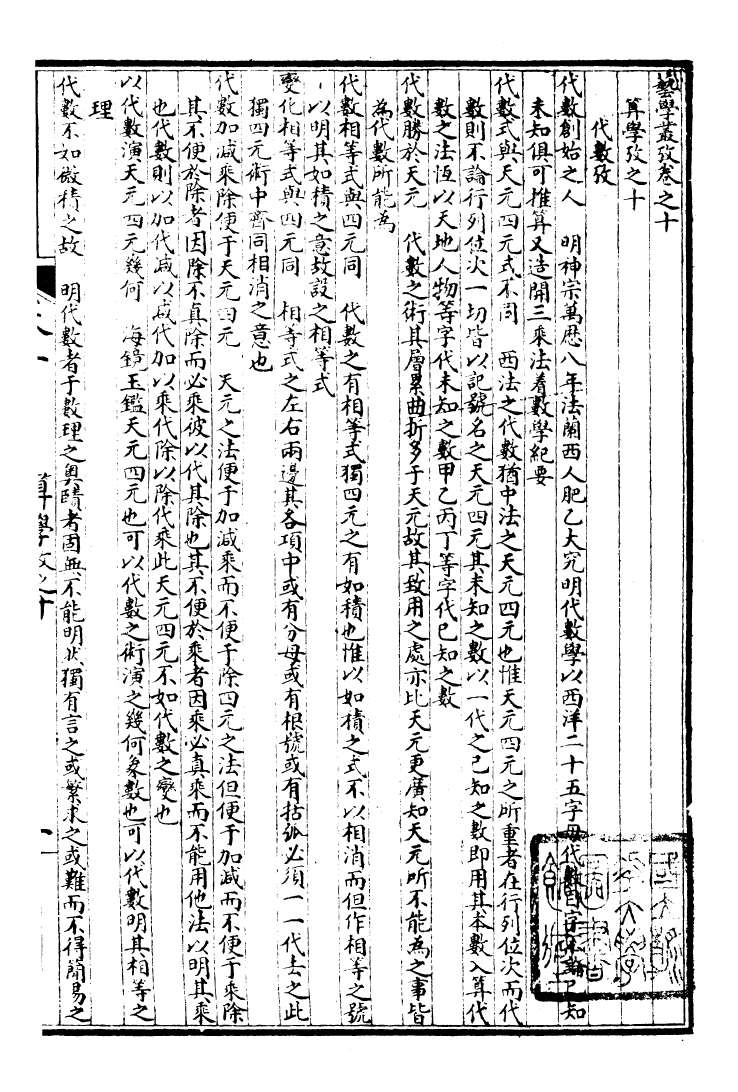 藝學叢攷卷之十
算學攷之十
代數攷
代數創始之人　明神宗萬厯八年法蘭西人肥乙大究明代數學以西洋二十五字母代數目字不論已知
未知俱可推算又造開三乘法着數學紀要
代數式與天元四元式不同　西法之代數猶中法之天元四元也惟天元四元之所重者在行列位次而代
數則不論行列位次一切皆以記號名之天元四元其未知之數以一代之已知之數即用其本數入算代
數之法恆以天地人物等字代未知之數甲乙丙丁等字代已知之數
代數勝於天元　代數之術其層累曲折多于天元故其致用之處亦比天元更廣知天元所不能為之事皆
為代數所能為
代數相等式與四元同　代數之有相等式獨四元之有如積也惟以如積之式不以相消而但作相等之號
以明其如積之意故設之相等式
變化相等式與四元同　相等式之左右兩邊其各項中或有分母或有根號或有括弧必須一一代去之此
獨四元術中齊同相消之意也
代數加減乘除便于天元四元　天元之法便于加減乘而不便于除四元之法但便于加減而不便于乘除
其不便於除者因除不真除而必乘彼以代其除也其不便於乘者因乘必真乘而不能用他法以明其乘
也代數則以加代減以減代加以乘代除以除代乘此天元四元不如代數之變也
以代數演天元四元幾何　海鏡玉鑑天元四元也可以代數之術演之幾何象數也可以代數明其相等之
理
代數不如微積之故　明代數者于數理之奧賾者固無不能明狀獨有言之或繁求之或難而不得簡易之
算學攷之十